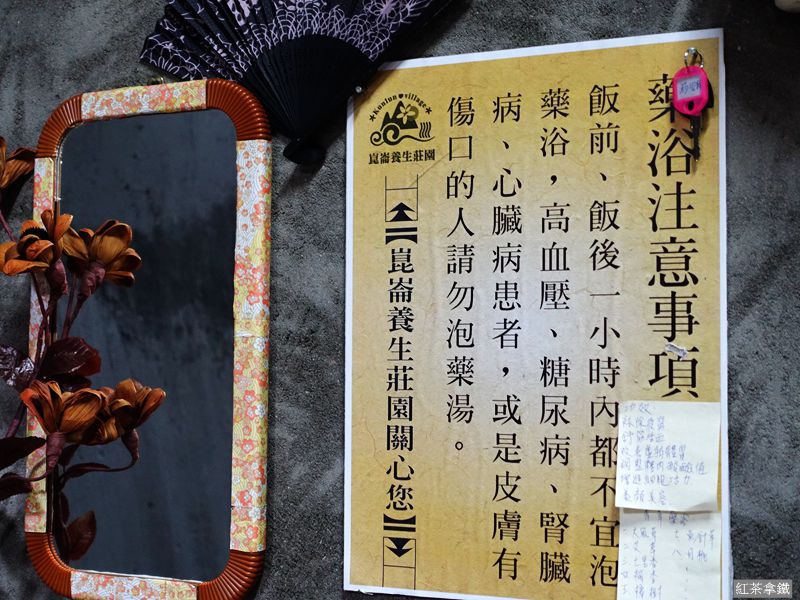 藥浴注意事項
飯前、飯後一小時內都不宜泡
藥浴，高血壓、糖尿病、腎臟
病、心臟病患者，或是皮膚有
傷口的人請勿泡藥湯。
★Kunlun♥village★
崑崙養生莊園
【崑崙養生莊園關心您】
功效
舒筋活血
增進細胞活力
養顏美容
紅茶拿鐵